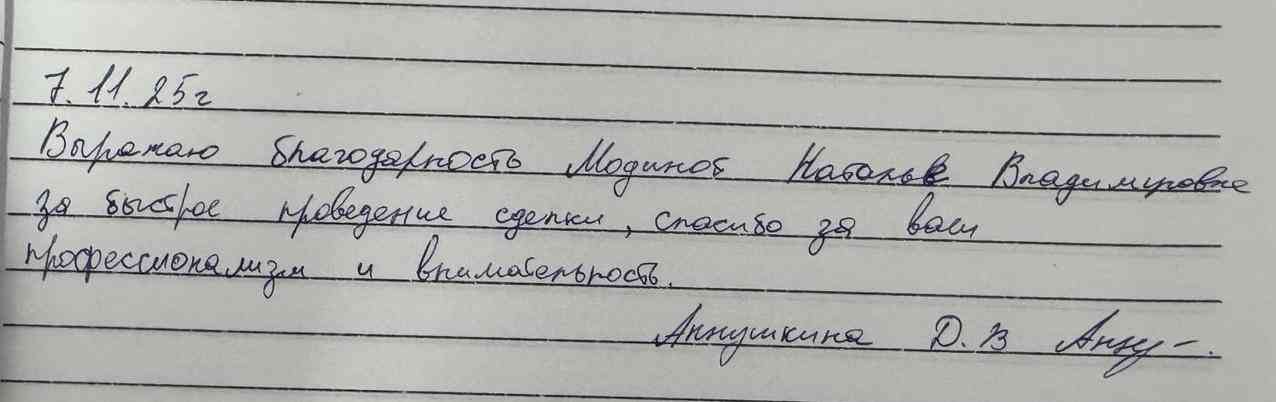 7.11.25г
Выражаю благодарность Модиной Наталье Владимировне
за быстрое проведение сделки, спасибо за ваш
профессионализм и внимательность.
Аннушкина Д.В